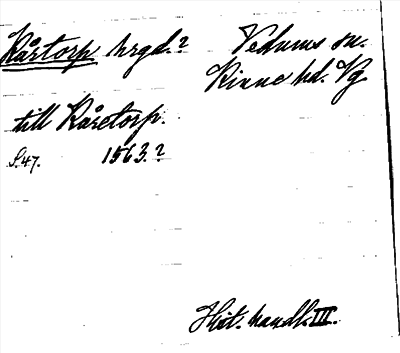 Kårtorp hrgd.?
Vedums sn.
Kinne hd. Vg
till Kåretorp.
S.47. 1563.?
Hist. handl. III.